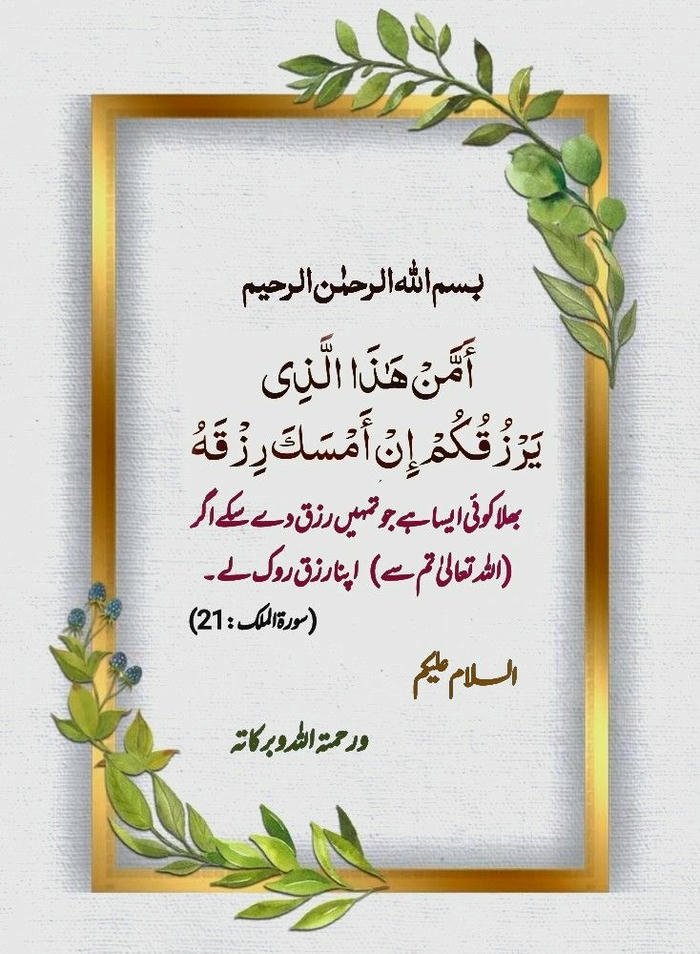 بسم اللہ الرحمٰن الرحیم
أَمَّنْ هَٰذَا الَّذِی
يَرْزُقُكُمْ إِنْ أَمْسَكَ رِزْقَهُ
بھلا کوئی ایسا ہے جو تمہیں رزق دے سکے اگر
(اللہ تعالیٰ تم سے) اپنا رزق روک لے۔
(سورۃ الملک : 21)
السلام علیکم
ورحمتہ اللہ وبرکاتہ